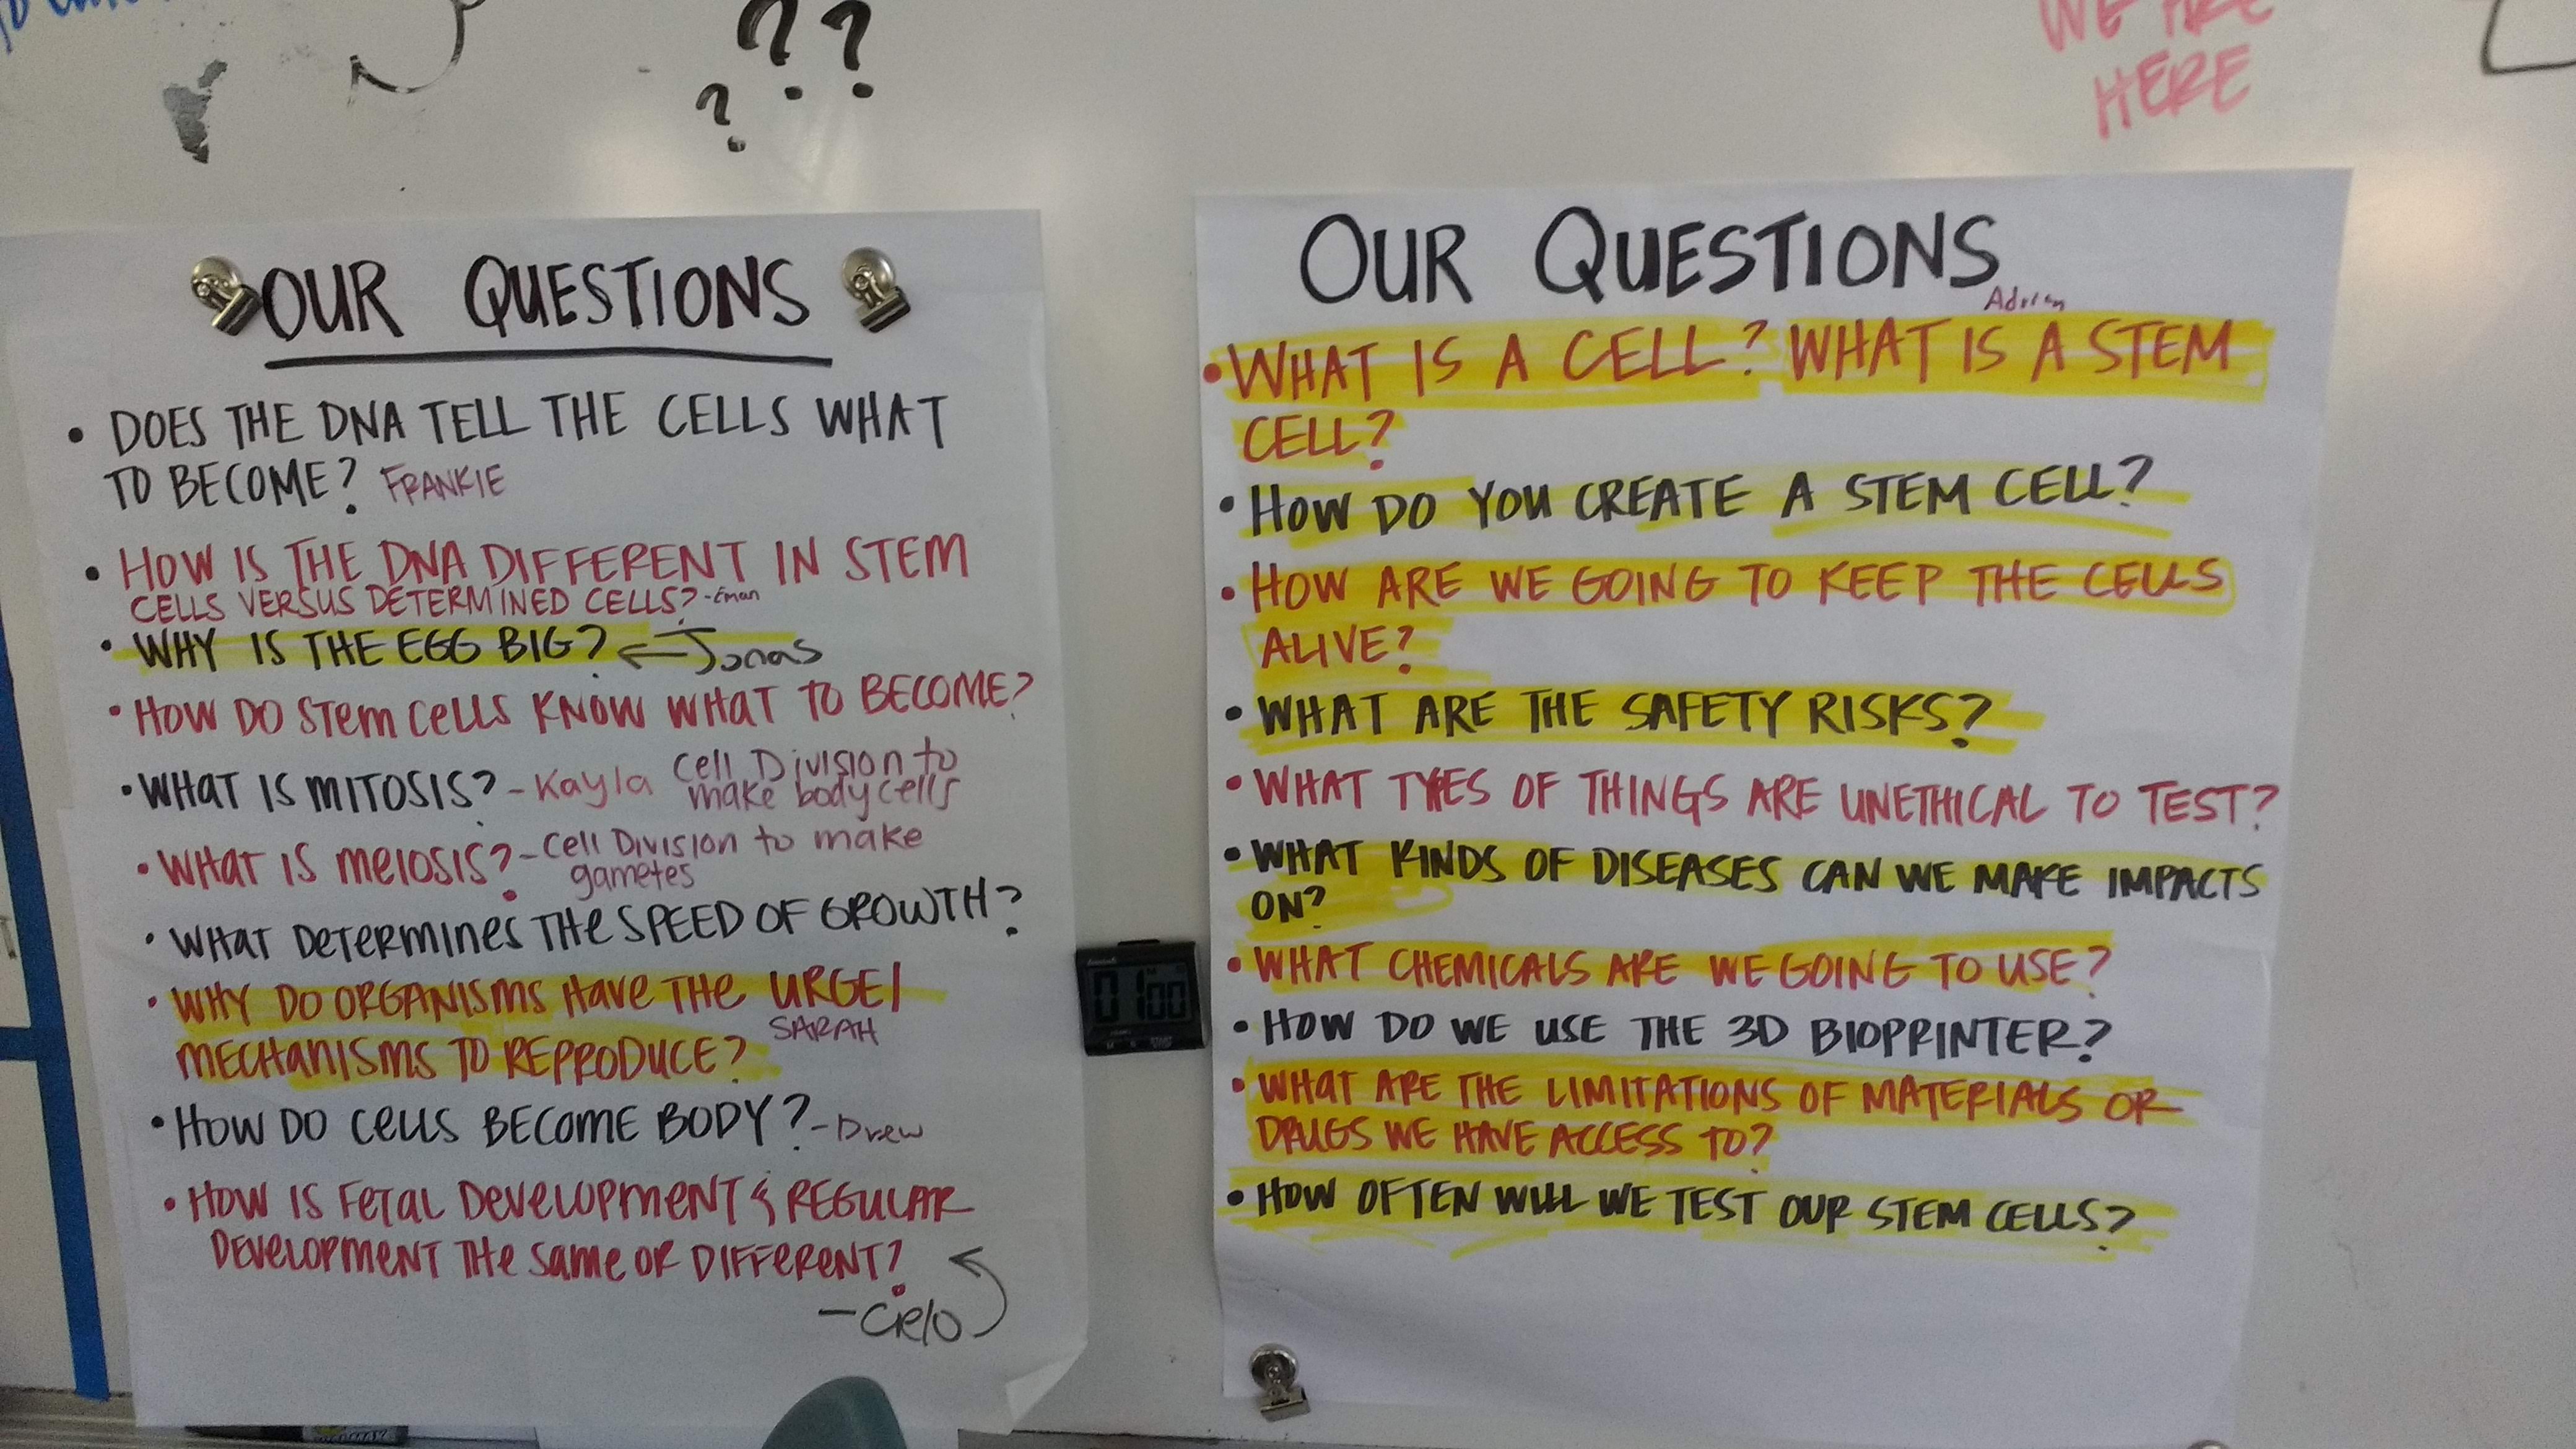 ? ? ?
WE ARE
HERE
OUR QUESTIONS
• DOES THE DNA TELL THE CELLS WHAT
TO BECOME? FRANKIE
• HOW IS THE DNA DIFFERENT IN STEM
CELLS VERSUS DETERMINED CELLS? -Eman
• WHY IS THE EGG BIG? ← Jonas
• HOW DO STEM CELLS KNOW WHAT TO BECOME?
• WHAT IS MITOSIS? - Kayla Cell Division to
make body cells
• WHAT IS MEIOSIS? - Cell Division to make
gametes
• WHAT DETERMINES THE SPEED OF GROWTH?
• WHY DO ORGANISMS HAVE THE URGE/
SARAH
MECHANISMS TO REPRODUCE?
• HOW DO CELLS BECOME BODY? - Drew
• HOW IS FETAL DEVELOPMENT & REGULAR
DEVELOPMENT THE SAME OR DIFFERENT?
- Cielo
01 00
OUR QUESTIONS
Adrien
• WHAT IS A CELL? WHAT IS A STEM
CELL?
• HOW DO YOU CREATE A STEM CELL?
• HOW ARE WE GOING TO KEEP THE CELLS
ALIVE?
• WHAT ARE THE SAFETY RISKS?
• WHAT TYPES OF THINGS ARE UNETHICAL TO TEST?
• WHAT KINDS OF DISEASES CAN WE MAKE IMPACTS
ON?
• WHAT CHEMICALS ARE WE GOING TO USE?
• HOW DO WE USE THE 3D BIOPRINTER?
• WHAT ARE THE LIMITATIONS OF MATERIALS OR
DRUGS WE HAVE ACCESS TO?
• HOW OFTEN WILL WE TEST OUR STEM CELLS?